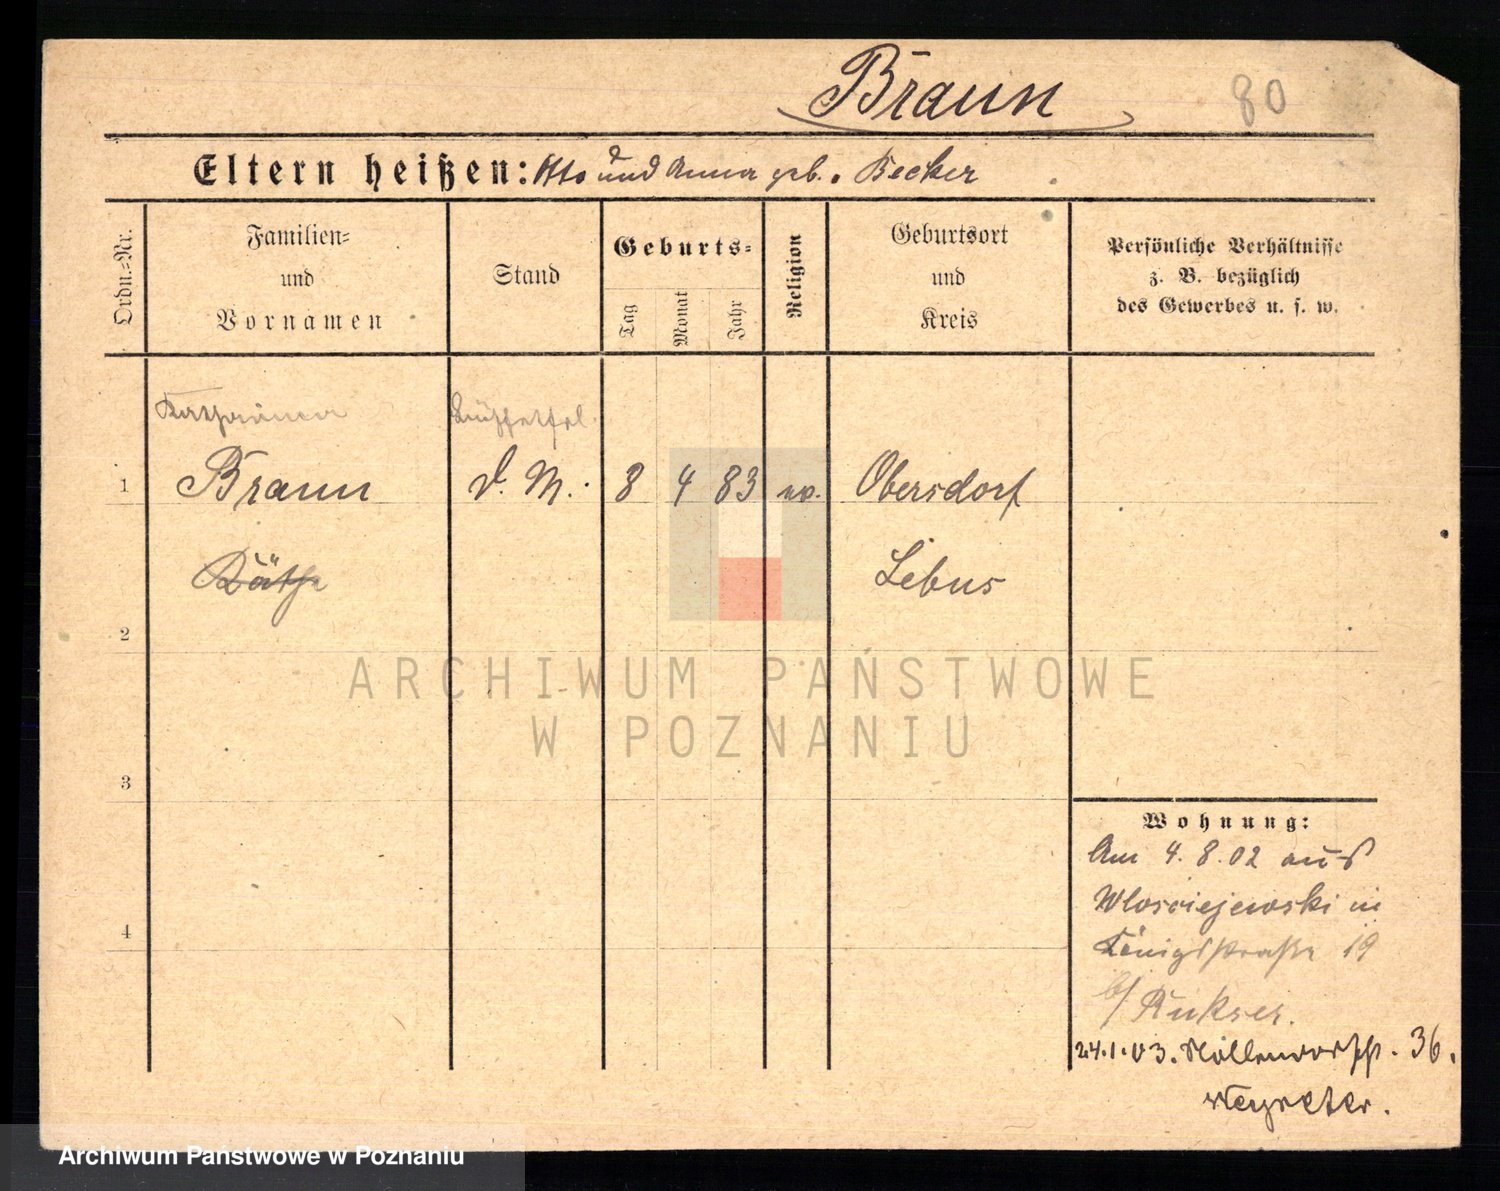 Braun
80
Eltern heißen: Otto und Anna geb. Becker
Ordn.-Nr.
Familien-
und
Vornamen
Stand
Geburts-
Tag
Monat
Jahr
Religion
Geburtsort
und
Kreis
Persönliche Verhältnisse
z. B. bezüglich
des Gewerbes u. s. w.
Katharina
Büffetfrl.
1
Braun
d. M.
8
4
83
ev.
Obersdorf
Käthe
Lebus
2
3
4
Wohnung:
Am 4. 8. 02 aus
Wlosciejewski in
Königsstraße 19
b/ Rukser.
24.1.03.
36.
ARCHIWUM PAŃSTWOWE
W POZNANIU
Archiwum Państwowe w Poznaniu